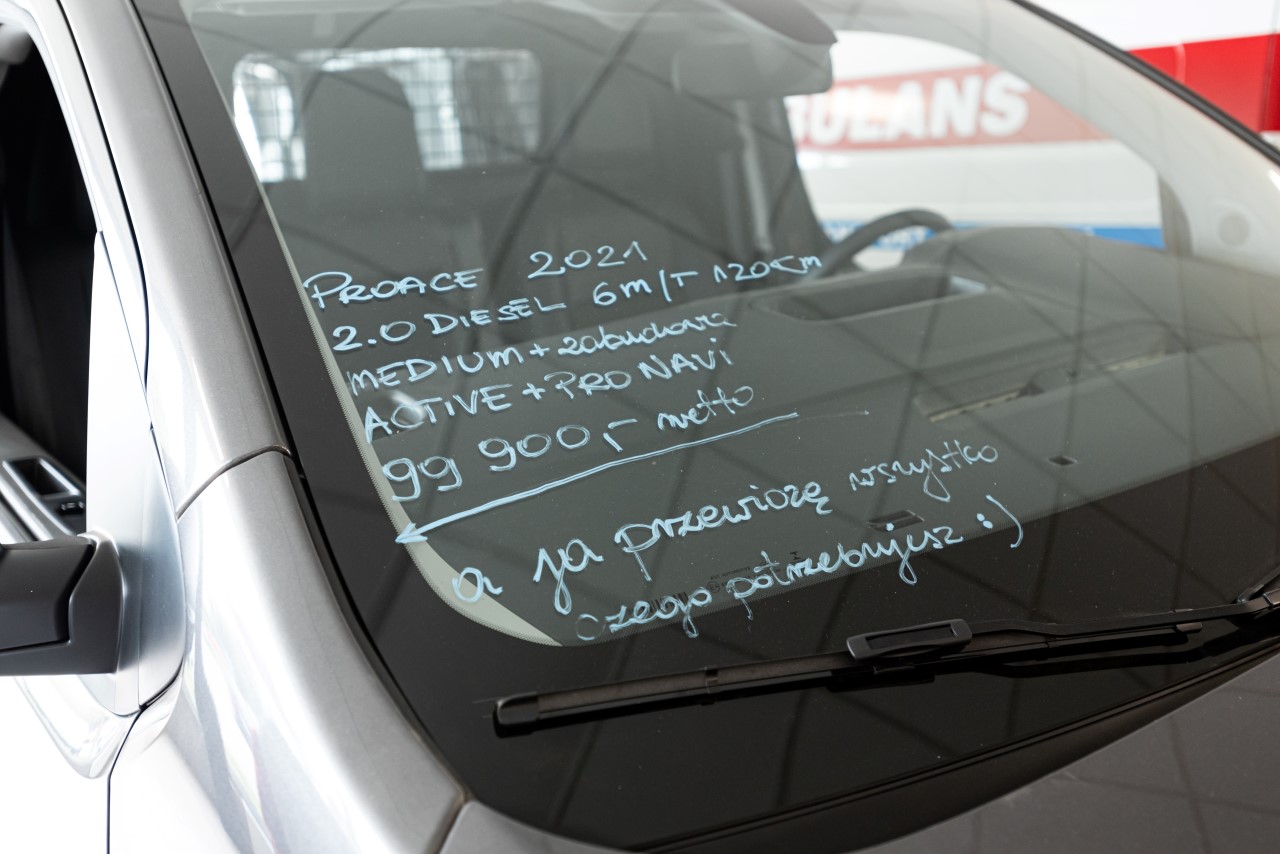 BULANS
PROACE 2021
2.0 DIESEL 6m/T 120KM
MEDIUM + zabudowa
ACTIVE + PRO NAVI
99 900,- netto
a ja przewiozę wszystko
czego potrzebujesz :)